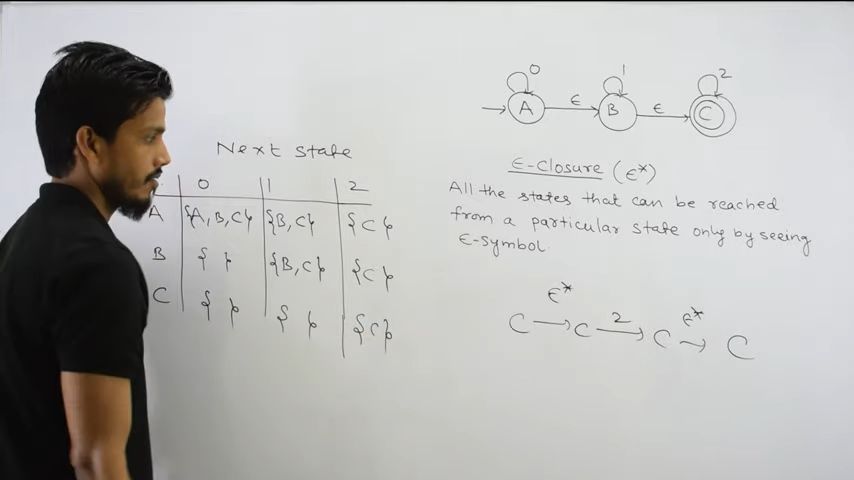 Next state
0 1 2
A {A, B, C} {B, C} {C}
B { } {B, C} {C}
C { } { } {C}
0 1 2
A ε B ε C
ε-closure (ε*)
All the states that can be reached
from a particular state only by seeing
ε-symbol.
ε* 2 ε*
C → C → C → C